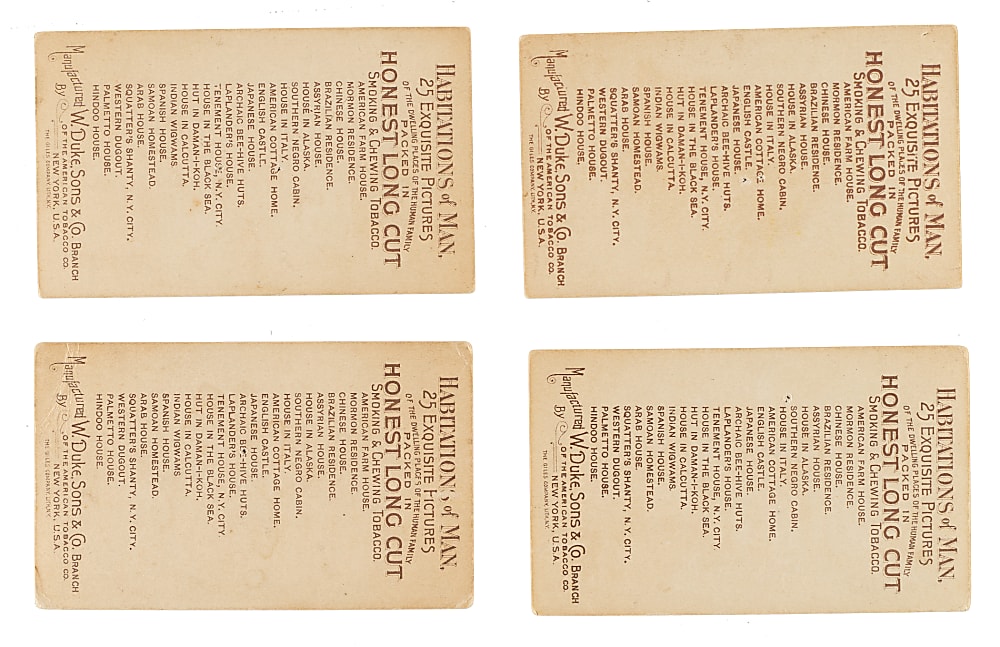 HABITATIONS of MAN,
25 EXQUISITE PICTURES
OF THE DWELLING PLACES OF THE HUMAN FAMILY
PACKED IN
HONEST LONG CUT
SMOKING & CHEWING TOBACCO.
AMERICAN FARM HOUSE.
MORMON RESIDENCE.
CHINESE HOUSE.
BRAZILIAN RESIDENCE.
ASSYRIAN HOUSE.
HOUSE IN ALASKA.
SOUTHERN NEGRO CABIN.
HOUSE IN ITALY.
AMERICAN COTTAGE HOME.
ENGLISH CASTLE.
JAPANESE HOUSE.
ARCHAIC BEE-HIVE HUTS.
LAPLANDER'S HOUSE.
TENEMENT HOUSE, N.Y. CITY.
HOUSE IN THE BLACK SEA.
HUT IN DAMAN-I-KOH.
HOUSE IN CALCUTTA.
INDIAN WIGWAMS.
SPANISH HOUSE.
SAMOAN HOMESTEAD.
ARAB HOUSE.
SQUATTER'S SHANTY, N.Y. CITY.
WESTERN DUGOUT.
PALMETTO HOUSE.
HINDOO HOUSE.
Manufactured By W. Duke Sons & Co. BRANCH
OF THE AMERICAN TOBACCO CO.
NEW YORK, U.S.A.
HABITATIONS of MAN,
25 EXQUISITE PICTURES
OF THE DWELLING PLACES OF THE HUMAN FAMILY
PACKED IN
HONEST LONG CUT
SMOKING & CHEWING TOBACCO.
AMERICAN FARM HOUSE.
MORMON RESIDENCE.
CHINESE HOUSE.
BRAZILIAN RESIDENCE.
ASSYRIAN HOUSE.
HOUSE IN ALASKA.
SOUTHERN NEGRO CABIN.
HOUSE IN ITALY.
AMERICAN COTTAGE HOME.
ENGLISH CASTLE.
JAPANESE HOUSE.
ARCHAIC BEE-HIVE HUTS.
LAPLANDER'S HOUSE.
TENEMENT HOUSE, N.Y. CITY.
HOUSE IN THE BLACK SEA.
HUT IN DAMAN-I-KOH.
HOUSE IN CALCUTTA.
INDIAN WIGWAMS.
SPANISH HOUSE.
SAMOAN HOMESTEAD.
ARAB HOUSE.
SQUATTER'S SHANTY, N.Y. CITY.
WESTERN DUGOUT.
PALMETTO HOUSE.
HINDOO HOUSE.
Manufactured By W. Duke Sons & Co. BRANCH
OF THE AMERICAN TOBACCO CO.
NEW YORK, U.S.A.
HABITATIONS of MAN,
25 EXQUISITE PICTURES
OF THE DWELLING PLACES OF THE HUMAN FAMILY
PACKED IN
HONEST LONG CUT
SMOKING & CHEWING TOBACCO.
AMERICAN FARM HOUSE.
MORMON RESIDENCE.
CHINESE HOUSE.
BRAZILIAN RESIDENCE.
ASSYRIAN HOUSE.
HOUSE IN ALASKA.
SOUTHERN NEGRO CABIN.
HOUSE IN ITALY.
AMERICAN COTTAGE HOME.
ENGLISH CASTLE.
JAPANESE HOUSE.
ARCHAIC BEE-HIVE HUTS.
LAPLANDER'S HOUSE.
TENEMENT HOUSE, N.Y. CITY.
HOUSE IN THE BLACK SEA.
HUT IN DAMAN-I-KOH.
HOUSE IN CALCUTTA.
INDIAN WIGWAMS.
SPANISH HOUSE.
SAMOAN HOMESTEAD.
ARAB HOUSE.
SQUATTER'S SHANTY, N.Y. CITY.
WESTERN DUGOUT.
PALMETTO HOUSE.
HINDOO HOUSE.
Manufactured By W. Duke Sons & Co. BRANCH
OF THE AMERICAN TOBACCO CO.
NEW YORK, U.S.A.
HABITATIONS of MAN,
25 EXQUISITE PICTURES
OF THE DWELLING PLACES OF THE HUMAN FAMILY
PACKED IN
HONEST LONG CUT
SMOKING & CHEWING TOBACCO.
AMERICAN FARM HOUSE.
MORMON RESIDENCE.
CHINESE HOUSE.
BRAZILIAN RESIDENCE.
ASSYRIAN HOUSE.
HOUSE IN ALASKA.
SOUTHERN NEGRO CABIN.
HOUSE IN ITALY.
AMERICAN COTTAGE HOME.
ENGLISH CASTLE.
JAPANESE HOUSE.
ARCHAIC BEE-HIVE HUTS.
LAPLANDER'S HOUSE.
TENEMENT HOUSE, N.Y. CITY.
HOUSE IN THE BLACK SEA.
HUT IN DAMAN-I-KOH.
HOUSE IN CALCUTTA.
INDIAN WIGWAMS.
SPANISH HOUSE.
SAMOAN HOMESTEAD.
ARAB HOUSE.
SQUATTER'S SHANTY, N.Y. CITY.
WESTERN DUGOUT.
PALMETTO HOUSE.
HINDOO HOUSE.
Manufactured By W. Duke Sons & Co. BRANCH
OF THE AMERICAN TOBACCO CO.
NEW YORK, U.S.A.